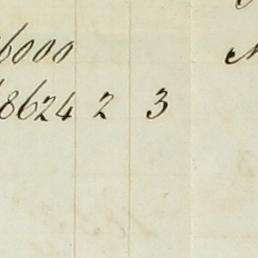 6000
8624 2 3